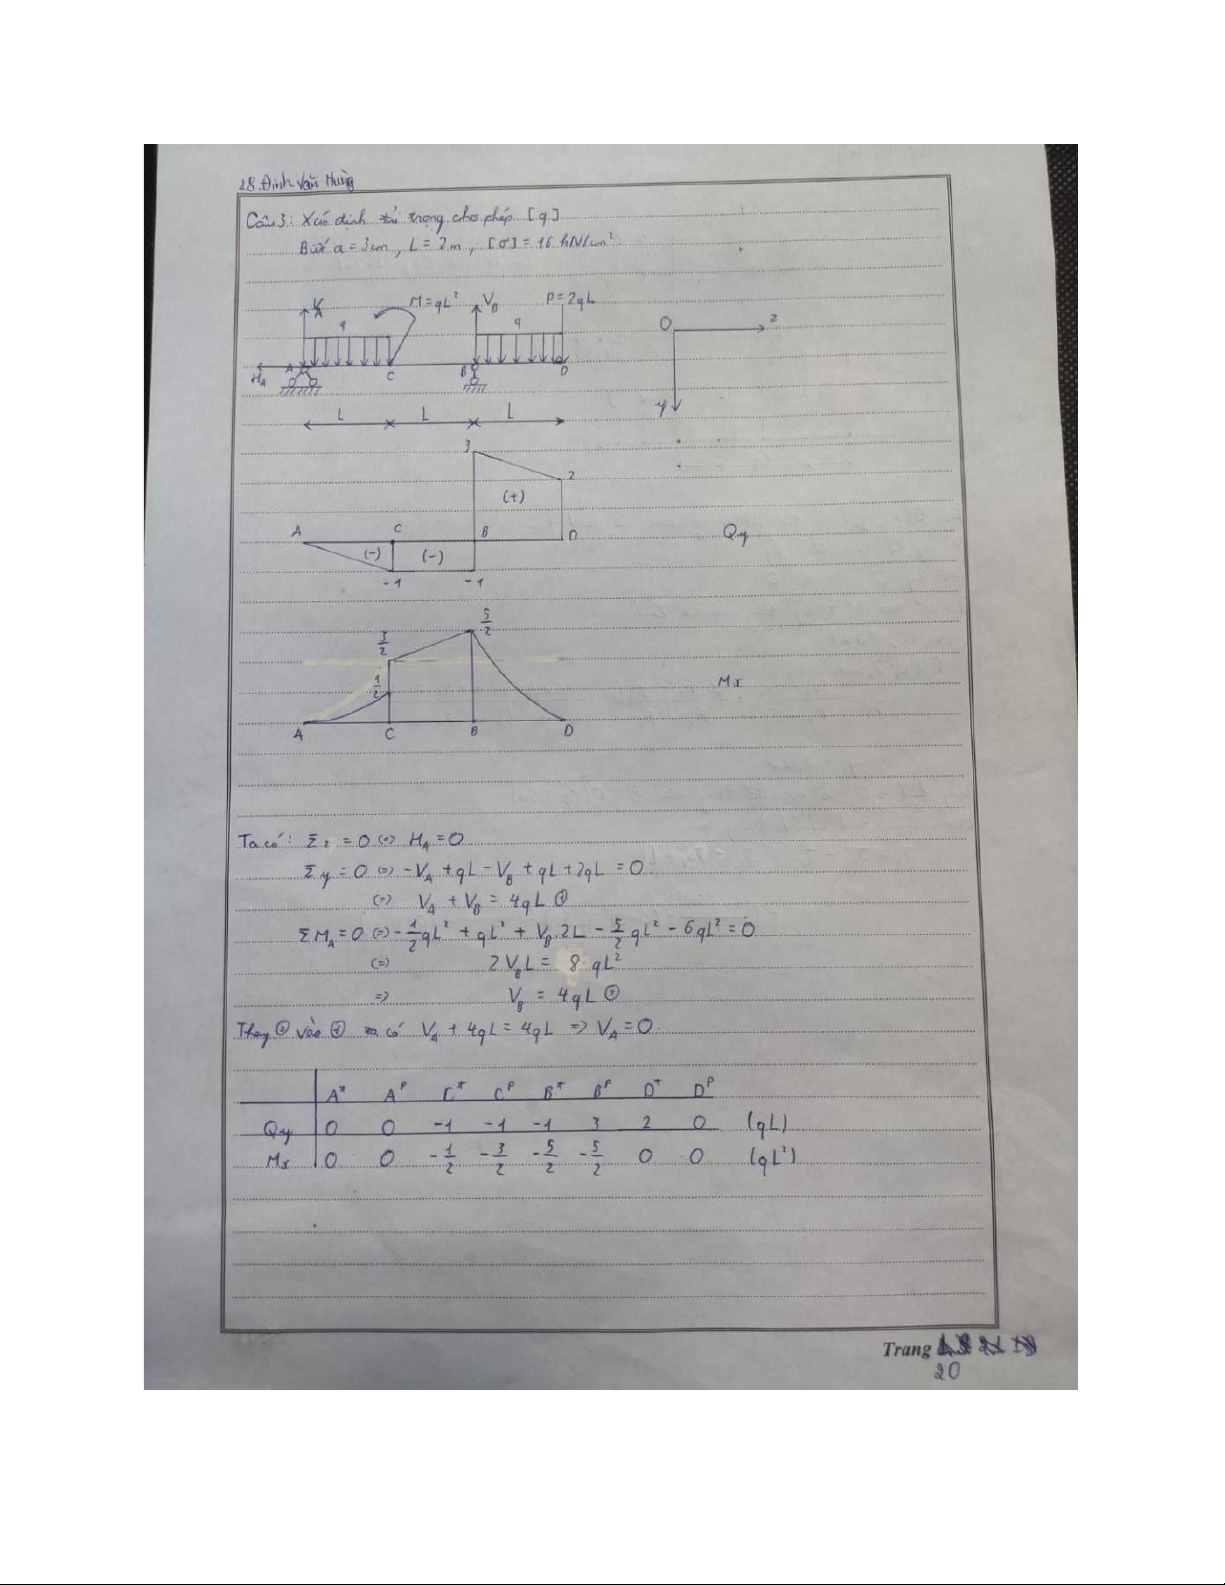 28. Đinh Văn Hưng
Câu 3: Xác định tải trọng cho phép [q]
Biết a = 3cm, L = 2m, [σ] = 16 kN/cm²
V_A M = qL² V_B P = 2qL
q q O z
H_A A C B D
y
L L L
3
2
(+)
A C B D Qy
(-) (-)
-1 -1
5/2
3/2
1/2 Mx
A C B D
Ta có: Σz = 0 (=) H_A = 0
Σy = 0 (=) -V_A + qL - V_B + qL + 2qL = 0
(=) V_A + V_B = 4qL ①
ΣM_A = 0 (=) -1/2 qL² + qL² + V_B.2L - 5/2 qL² - 6qL² = 0
(=) 2V_BL = 8 qL²
=> V_B = 4qL ②
Thay ② vào ① ta có V_A + 4qL = 4qL => V_A = 0
A^T A^P C^T C^P B^T B^P D^T D^P
Qy 0 0 -1 -1 -1 3 2 0 (qL)
Mx 0 0 -1/2 -3/2 -5/2 -5/2 0 0 (qL²)
Trang
20